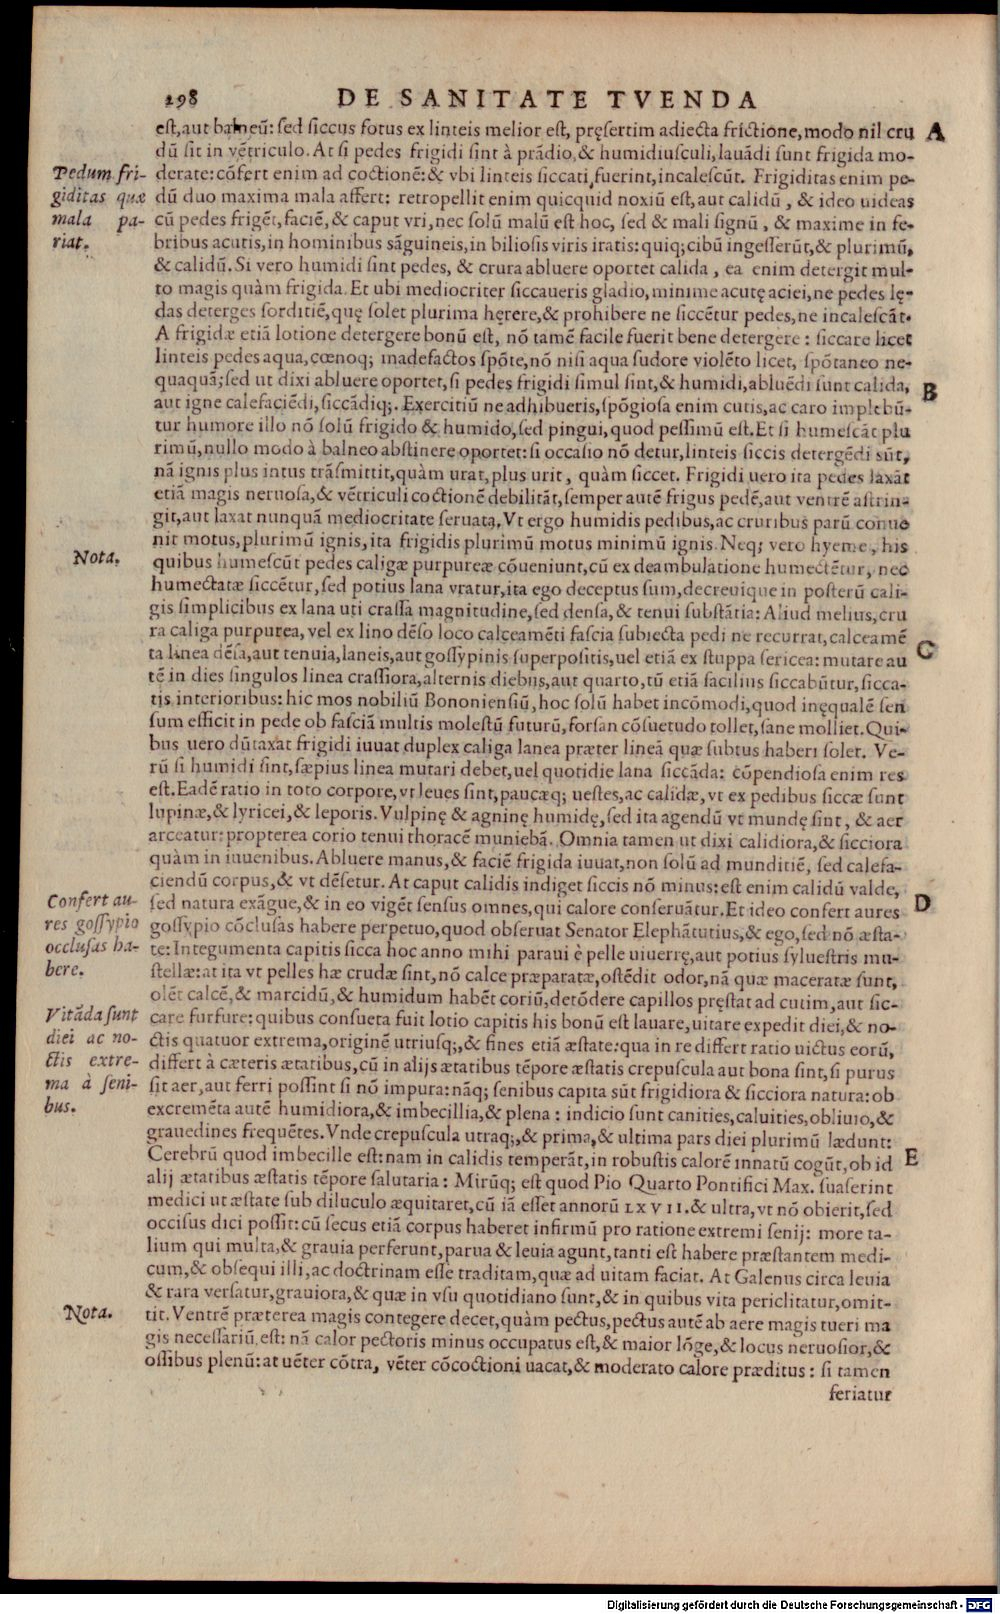 298 DE SANITATE TVENDA
est, aut balneũ: sed siccus fotus ex linteis melior est, pręsertim adiecta frictione, modo nil cru A
dũ sit in vẽtriculo. At si pedes frigidi sint à prãdio, & humidiusculi, lauãdi sunt frigida mo-
Pedum fri-
giditas quæ
mala pa-
riat.
derate: cõfert enim ad coctionẽ: & vbi linteis siccati fuerint, incalescũt. Frigiditas enim pe-
dũ duo maxima mala affert: retropellit enim quicquid noxiũ est, aut calidũ, & ideo uideas
cũ pedes frigẽt, faciẽ, & caput vri, nec solũ malũ est hoc, sed & mali signũ, & maxime in fe-
bribus acutis, in hominibus sãguineis, in biliosis viris iratis: quiq; cibũ ingesserũt, & plurimũ,
& calidũ. Si vero humidi sint pedes, & crura abluere oportet calida, ea enim detergit mul-
to magis quàm frigida. Et ubi mediocriter siccaueris gladio, minime acutę aciei, ne pedes lę-
das deterges sorditiẽ, quę solet plurima hęrere, & prohibere ne siccẽtur pedes, ne incalescãt.
A frigidæ etiã lotione detergere bonũ est, nõ tamẽ facile fuerit bene detergere: siccare licet
linteis pedes aqua, cœnoq; madefactos spõte, nõ nisi aqua sudore violẽto licet, spõtaneo ne-
quaquã; sed ut dixi abluere oportet, si pedes frigidi simul sint, & humidi, abluẽdi sunt calida, B
aut igne calefaciẽdi, siccãdiq;. Exercitiũ ne adhibueris, spõgiosa enim cutis, ac caro implebũ-
tur humore illo nõ solũ frigido & humido, sed pingui, quod pessimũ est. Et si humescãt plu
rimũ, nullo modo à balneo abstinere oportet: si occasio nõ detur, linteis siccis detergẽdi sũt,
nã ignis plus intus trãsmittit, quàm urat, plus urit, quàm siccet. Frigidi uero ita pedes laxãt
etiã magis neruosa, & vẽtriculi coctionẽ debilitãt, semper autẽ frigus pedẽ, aut ventrẽ astrin-
git, aut laxat nunquã mediocritate seruata. Vt ergo humidis pedibus, ac cruribus parũ conue
nit motus, plurimũ ignis, ita frigidis plurimũ motus minimũ ignis. Neq; vero hyeme, his
Nota.
quibus humescũt pedes caligæ purpureæ cõueniunt, cũ ex deambulatione humectẽtur, nec
humectatæ siccẽtur, sed potius lana vratur, ita ego deceptus sum, decreuique in posterũ cali-
gis simplicibus ex lana uti crassa magnitudine, sed densa, & tenui substãtia: Aliud melius, cru
ra caliga purpurea, vel ex lino dẽso loco calceamẽti fascia subiecta pedi ne recurrat, calceamẽ
ta linea dẽsa, aut tenuia, laneis, aut gossypinis superpositis, uel etiã ex stuppa sericea: mutare au C
tẽ in dies singulos linea crassiora, alternis diebus, aut quarto, tũ etiã facilius siccabũtur, sicca-
tis interioribus: hic mos nobiliũ Bononiensiũ, hoc solũ habet incõmodi, quod inęqualẽ sen
sum efficit in pede ob fasciã multis molestũ futurũ, forsan cõsuetudo tollet, sane molliet. Qui-
bus uero dũtaxat frigidi iuuat duplex caliga lanea præter lineã quæ subtus haberi solet. Ve-
rũ si humidi sint, sæpius linea mutari debet, uel quotidie lana siccãda: cõpendiosa enim res
est. Eadẽ ratio in toto corpore, vt leues sint, paucæq; uestes, ac calidæ, vt ex pedibus siccæ sunt
lupinæ, & lyricei, & leporis. Vulpinę & agninę humidę, sed ita agendũ vt mundę sint, & aer
arceatur: propterea corio tenui thoracẽ muniebã. Omnia tamen ut dixi calidiora, & sicciora
quàm in iuuenibus. Abluere manus, & faciẽ frigida iuuat, non solũ ad munditiẽ, sed calefa-
ciendũ corpus, & vt dẽsetur. At caput calidis indiget siccis nõ minus: est enim calidũ valde,
Confert au-
res gossypio
occlusas ha-
bere.
sed natura exãgue, & in eo vigẽt sensus omnes, qui calore conseruãtur. Et ideo confert aures D
gossypio cõclusas habere perpetuo, quod obseruat Senator Elephãtutius, & ego, sed nõ æsta-
te: Integumenta capitis sicca hoc anno mihi paraui è pelle uiuerrę, aut potius syluestris mu-
stellæ: at ita vt pelles hæ crudæ sint, nõ calce præparatæ, ostẽdit odor, nã quæ maceratæ sunt,
olẽt calcẽ, & marcidũ, & humidum habẽt coriũ, detõdere capillos pręstat ad cutim, aut sic-
Vitãda sunt
diei ac no-
ctis extre-
ma à seni-
bus.
care furfure: quibus consueta fuit lotio capitis his bonũ est lauare, uitare expedit diei, & no-
ctis quatuor extrema, originẽ utriusq;, & fines etiã æstate: qua in re differt ratio uictus eorũ,
differt à cæteris ætatibus, cũ in alijs ætatibus tẽpore æstatis crepuscula aut bona sint, si purus
sit aer, aut ferri possint si nõ impura: nãq; senibus capita sũt frigidiora & sicciora natura: ob
excremẽta autẽ humidiora, & imbecillia, & plena: indicio sunt canities, caluities, obliuio, &
grauedines frequẽtes. Vnde crepuscula utraq;, & prima, & ultima pars diei plurimũ lædunt:
Cerebrũ quod imbecille est: nam in calidis temperãt, in robustis calorẽ innatũ cogũt, ob id E
alij ætatibus æstatis tẽpore salutaria: Mirũq; est quod Pio Quarto Pontifici Max. suaserint
medici ut æstate sub diluculo æquitaret, cũ iã esset annorũ LXVII. & ultra, vt nõ obierit, sed
occisus dici possit: cũ secus etiã corpus haberet infirmũ pro ratione extremi senij: more ta-
lium qui multa, & grauia perferunt, parua & leuia agunt, tanti est habere præstantem medi-
cum, & obsequi illi, ac doctrinam esse traditam, quæ ad uitam faciat. At Galenus circa leuia
& rara versatur, grauiora, & quæ in vsu quotidiano sunt, & in quibus vita periclitatur, omit-
Nota.
tit. Ventrẽ præterea magis contegere decet, quàm pectus, pectus autẽ ab aere magis tueri ma
gis necessariũ est: nã calor pectoris minus occupatus est, & maior lõge, & locus neruosior, &
ossibus plenũ: at uẽter cõtra, vẽter cõcoctioni uacat, & moderato calore præditus: si tamen
feriatur
Digitalisierung gefördert durch die Deutsche Forschungsgemeinschaft - DFG